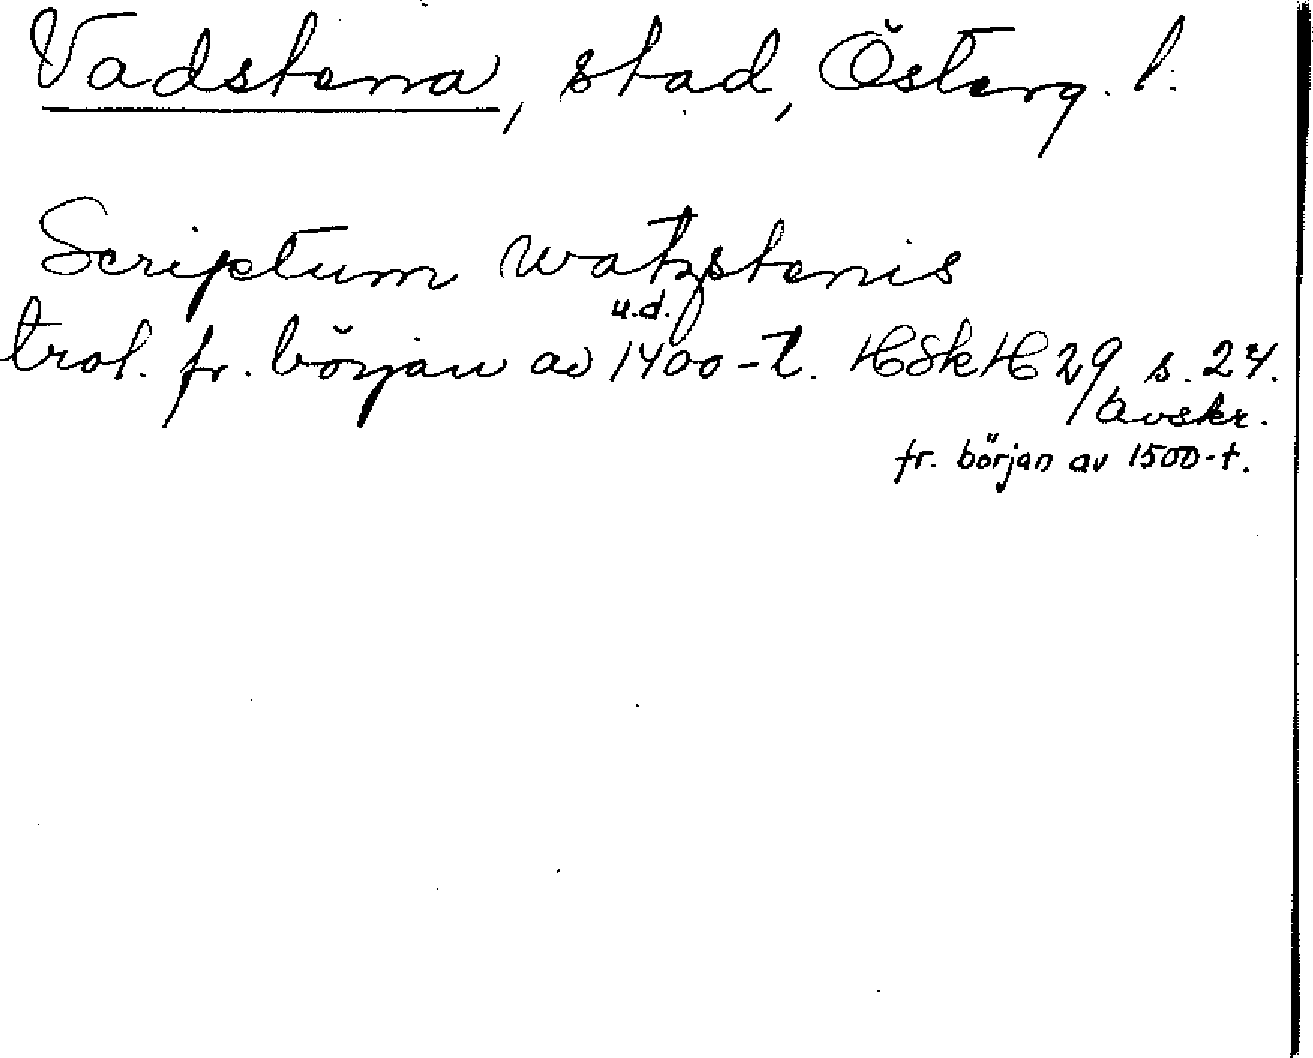 Vadstena, stad, Österg. l.
Scriptum watzstenis
u.d.
trol. fr. början av 1400-t. HSkH 29 s. 24.
Avskr.
fr. början av 1500-t.